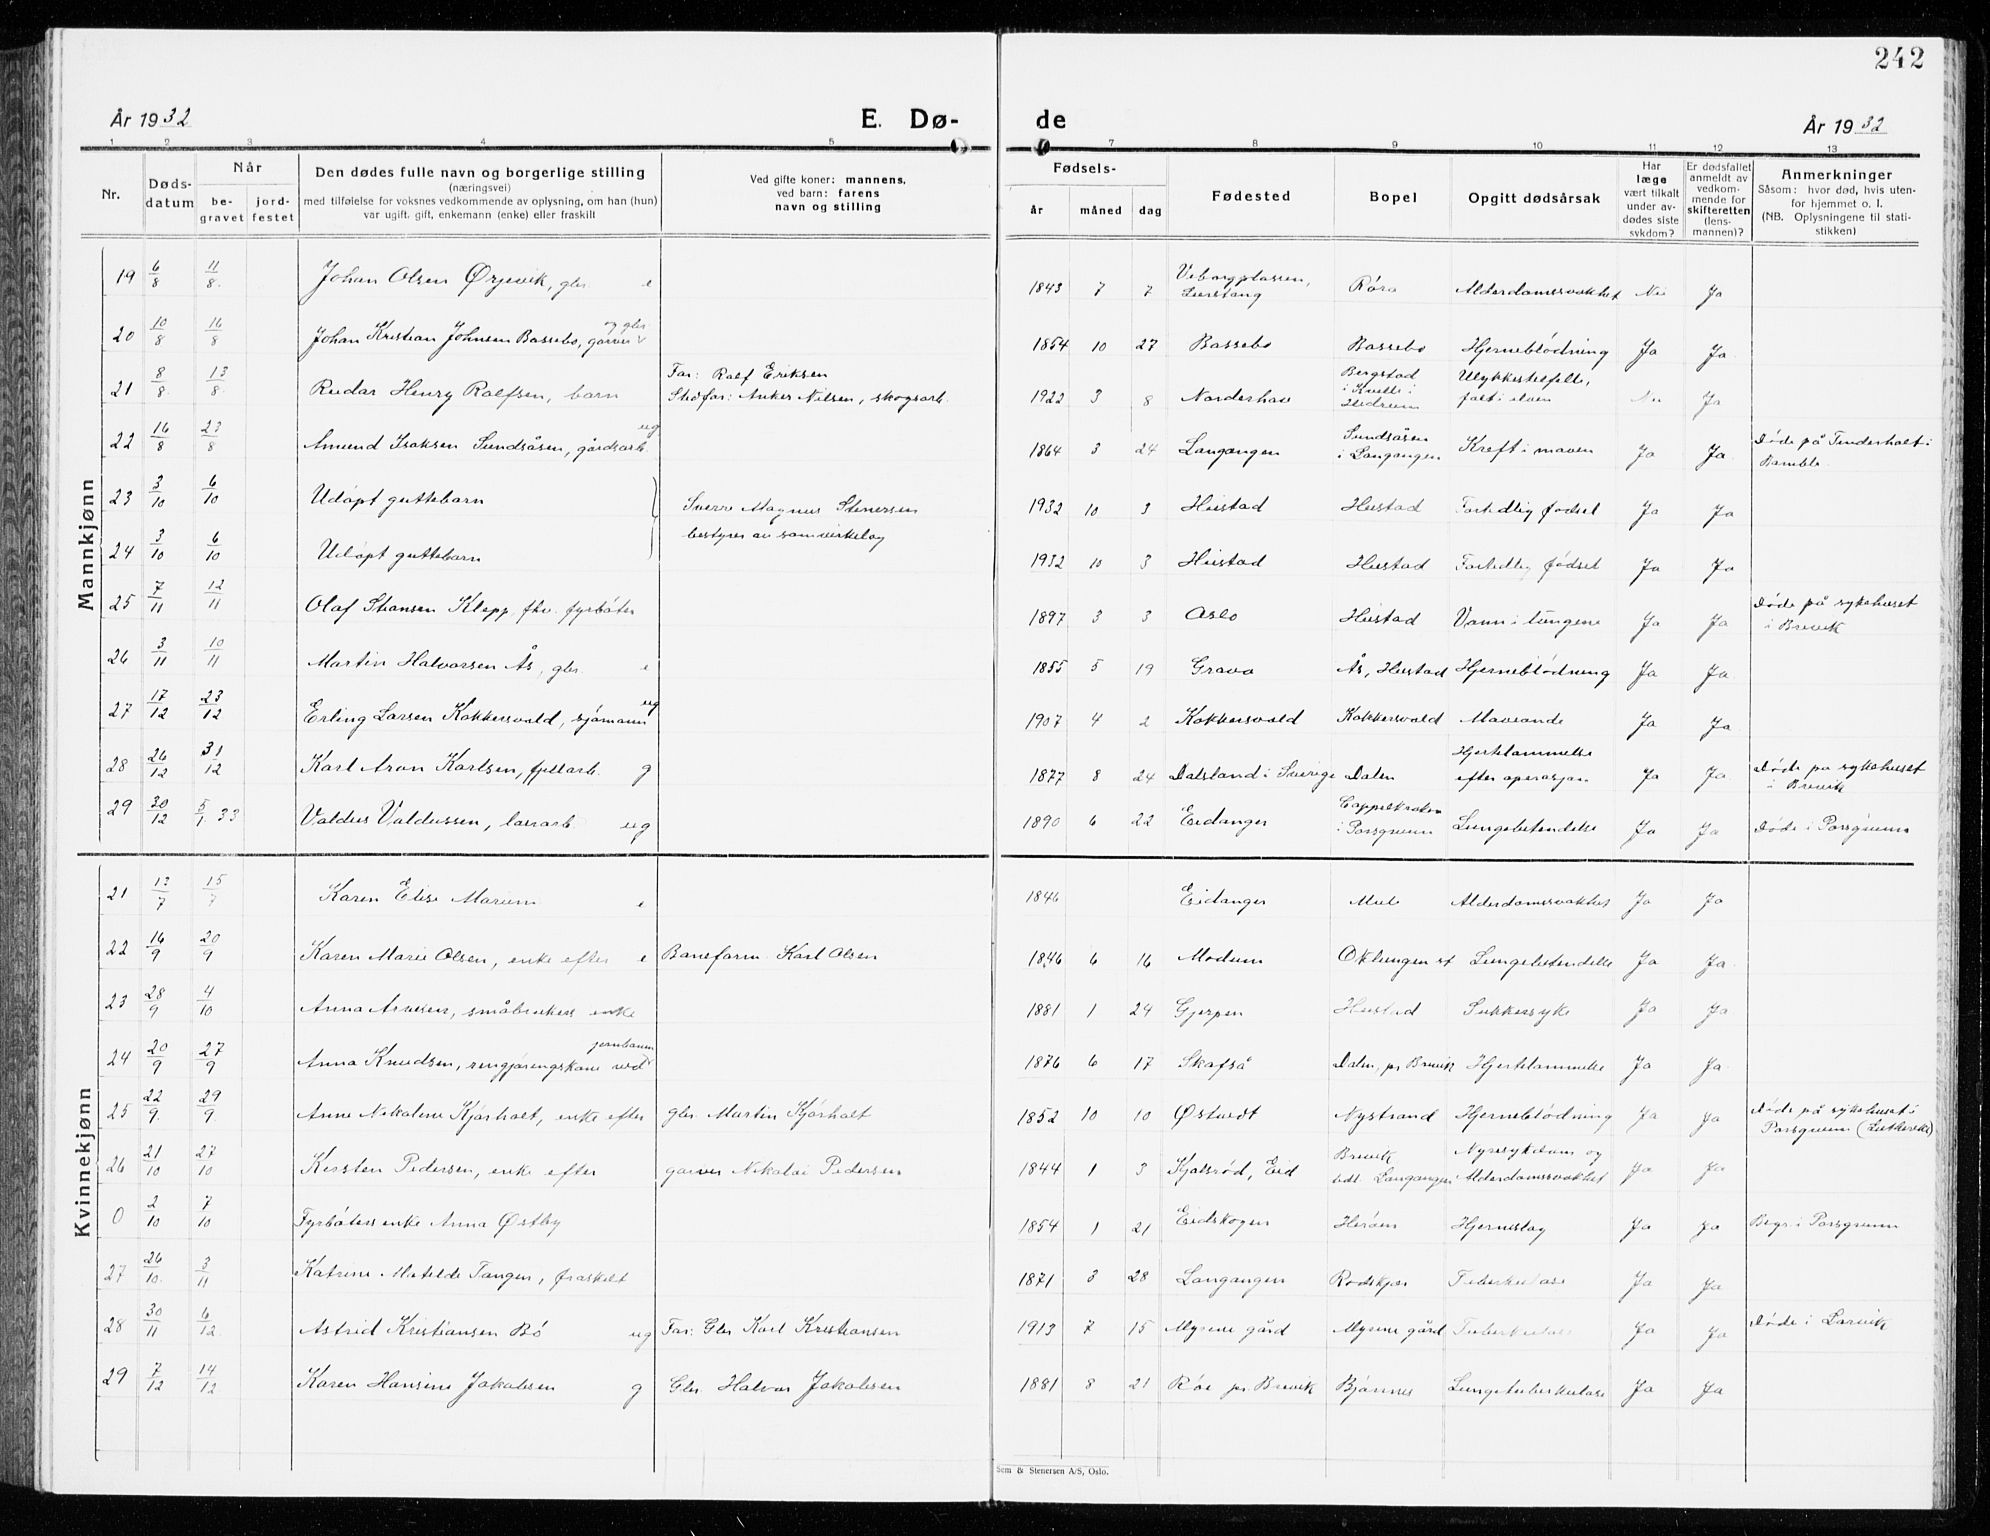 242
År 1932 E. Dø- de År 1932
1 2 3 4 5 7 8 9 10 11 12 13
Nr. Døds-datum Når be-gravet jord-festet Den dødes fulle navn og borgerlige stilling (næringsvei) med tilføielse for voksnes vedkommende av oplysning, om han (hun) var ugift, gift, enkemann (enke) eller fraskilt Ved gifte koner: mannens, ved barn: farens navn og stilling Fødsels- år måned dag Fødested Bopel Opgitt dødsårsak Har læge vært tilkalt under av-dødes siste sykdom? Er dødsfallet anmeldt av vedkom-mende for skifteretten (lens-mannen)? Anmerkninger Såsom: hvor død, hvis uten-for hjemmet o. l. (NB. Oplysningene til stati-stikken)
Mannkjønn
19 6/8 11/8 Johan Olsen Ørjevik, gbr. e 1843 7 7 Røra Alderdomssvakhet Nei Ja
20 10/8 16/8 Johan Kristian Johnsen Bassebo, garver og gbr 1854 10 27 Bassebo Bassebo Hjerneblødning Ja Ja
21 8/8 13/8 Reidar Henry Ralfsen, barn Far: Ralf Eriksen
Stedfar: Anker Nilsen, skogsarb. 1922 3 8 Norderhov Bergstad i Kvelle i Hedrum Ulykkestilfelle, falt i elven Nei Ja
22 16/8 23/8 Amund Isaksen Sundsåsen, gårdsarb. ug 1864 3 24 Langangen Sundsåsen i Langangen Kreft i maven Ja Ja Døde på Tinderholt i Bamble
23 3/10 6/10 Udøpt guttebarn Sverre Magnus Stenersen 1932 10 3 Heistad Heistad For tidlig fødsel Ja Ja
bestyrer av samvirkelag
24 3/10 6/10 Udøpt guttebarn 1932 10 3 Heistad Heistad For tidlig fødsel Ja Ja
25 7/11 12/11 Olaf Stensen Klepp, fhv. fyrbøter 1897 3 3 Oslo Heistad Vann i lungene Ja Ja Døde på sykehuset i Brevik
26 3/11 10/11 Martin Halvorsen Ås, gbr. e 1855 5 19 Grava Ås, Heistad Hjerneblødning Ja Ja
27 17/12 23/12 Erling Larsen Kokkersvold, sjømann ug 1907 4 2 Kokkersvold Kokkersvold Ja Ja
28 26/12 31/12 Karl Aron Karlsen, fjellarb. g 1877 8 24 Dalsland i Sverige Dalen Hjertelammelse efter operasjon Ja Ja Døde på sykehuset i Brevik
29 30/12 5/1 33 Valdus Valdussen, løsarb. ug 1890 6 22 Eidanger i Porsgrunn Lungebetendelse Ja Ja Døde i Porsgrunn
Kvinnekjønn
21 13/7 15/7 Karen Elise Marium e 1846 Eidanger Mule Alderdomssvakhet Ja Ja
22 16/9 20/9 Karen Marie Olsen, enke efter e Baneform. Karl Olsen 1846 6 16 Modum Oklungen st Lungebetendelse Ja Ja
23 28/9 4/10 Anna Arnesen, småbrukers enke 1881 1 24 Gjerpen Heistad Sukkersyke Ja Ja
24 20/9 27/9 Anna Knudsen, rengjøringskone ved jernbanen 1876 6 17 Skafså Dalen, pr Brevik Hjertelammelse Ja Ja
25 22/9 29/9 Anne Nikoline Kjørholt, enke efter gbr. Martin Kjørholt 1852 10 10 Østvedt Nystrand Hjerneblødning Ja Ja Døde på sykehuset i Porsgrunn
26 21/10 27/10 Kirsten Pedersen, enke efter garver Nikolai Pedersen 1844 1 3 Kjølsrød, Eid Brevik Langangen Nyresykdom og Alderdomssvakhet Ja Ja
0 2/10 7/10 Fyrbøters enke Anna Østby 1854 1 21 Eidskogen Herøen Hjerneslag Ja Ja Begr i Porsgrunn
27 26/10 3/11 Katrine Matilde Tangen, fraskilt 1871 3 28 Langangen Rødskjær Tuberkulose Ja Ja
28 30/11 6/12 Astrid Kristiansen Bø ug Far: Gbr Karl Kristiansen 1913 7 15 Myrene gård Myrene gård Tuberkulose Ja Ja Døde i Larvik
29 7/12 14/12 Karen Hansine Jakobsen g Gbr. Halvor Jakobsen 1881 8 21 Røe pr. Brevik Bjønnes Lungetuberkulose Ja Ja
Sem & Stenersen A/S, Oslo.